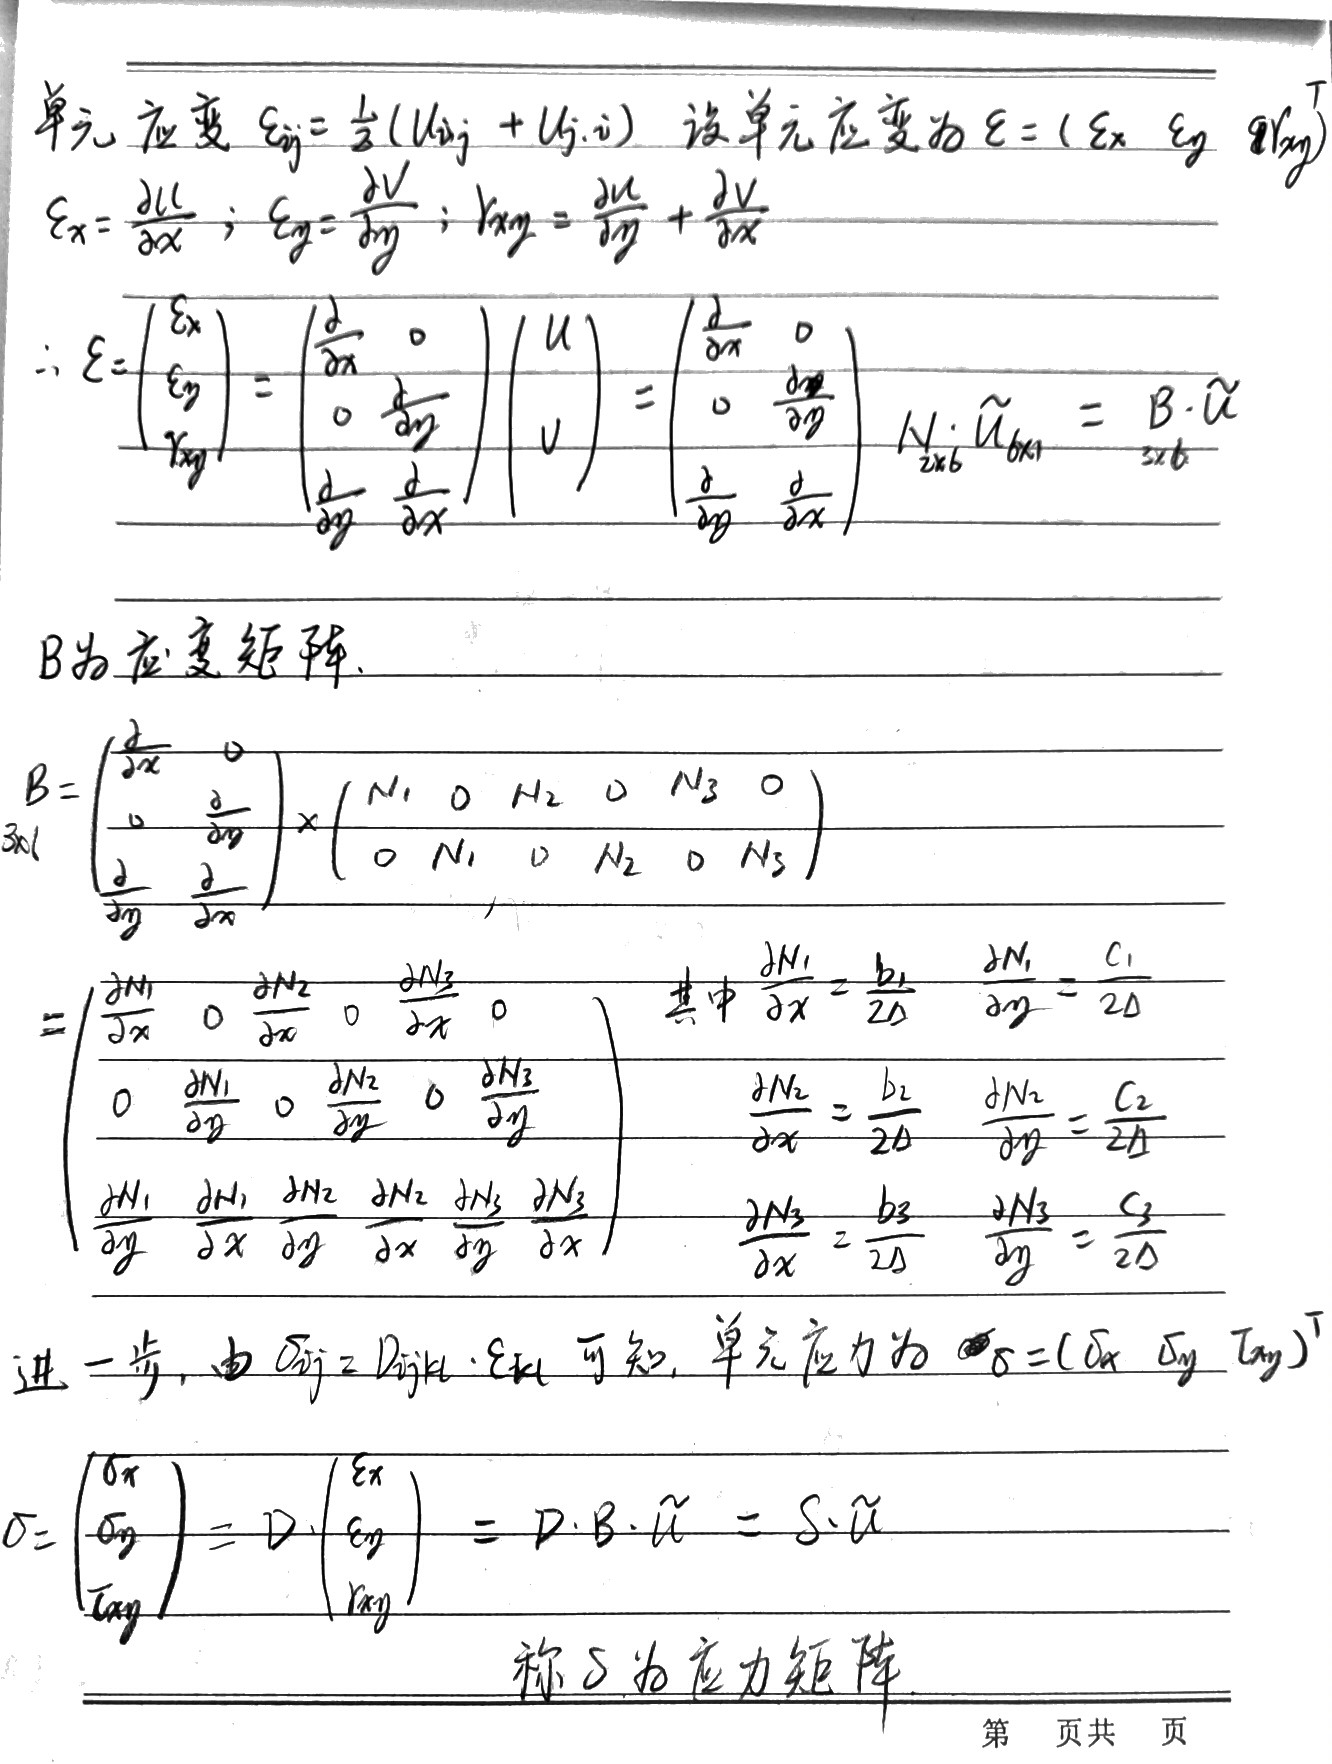 单元应变 εij = 1/2 (Ui,j + Uj,i) 设单元应变为 ε = (εx εy γxy)^T
εx = ∂u/∂x ; εy = ∂v/∂y ; γxy = ∂u/∂y + ∂v/∂x
∴ ε = (εx ; εy ; γxy) = (∂/∂x 0 ; 0 ∂/∂y ; ∂/∂y ∂/∂x) (u ; v) = (∂/∂x 0 ; 0 ∂/∂y ; ∂/∂y ∂/∂x) N_{2×6} · ũ_{6×1} = B_{3×6} · ũ
B为应变矩阵.
B_{3×6} = (∂/∂x 0 ; 0 ∂/∂y ; ∂/∂y ∂/∂x) × (N1 0 N2 0 N3 0 ; 0 N1 0 N2 0 N3)
= (∂N1/∂x 0 ∂N2/∂x 0 ∂N3/∂x 0 ; 0 ∂N1/∂y 0 ∂N2/∂y 0 ∂N3/∂y ; ∂N1/∂y ∂N1/∂x ∂N2/∂y ∂N2/∂x ∂N3/∂y ∂N3/∂x)
其中 ∂N1/∂x = b1/2Δ ∂N1/∂y = C1/2Δ
∂N2/∂x = b2/2Δ ∂N2/∂y = C2/2Δ
∂N3/∂x = b3/2Δ ∂N3/∂y = C3/2Δ
进一步, 由 σij = Dijkl · εkl 可知, 单元应力为 σ = (σx σy τxy)^T
σ = (σx ; σy ; τxy) = D · (εx ; εy ; γxy) = D · B · ũ = S · ũ
称S为应力矩阵.
第 页共 页